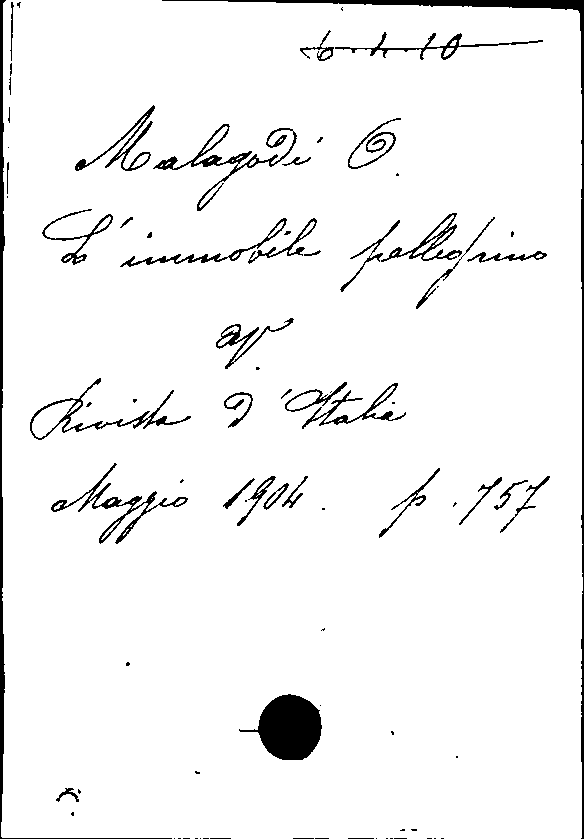 6.4.10
Malagodi O.
L'immobile pellegrino
ap.
Rivista d'Italia
Maggio 1904. p. 757